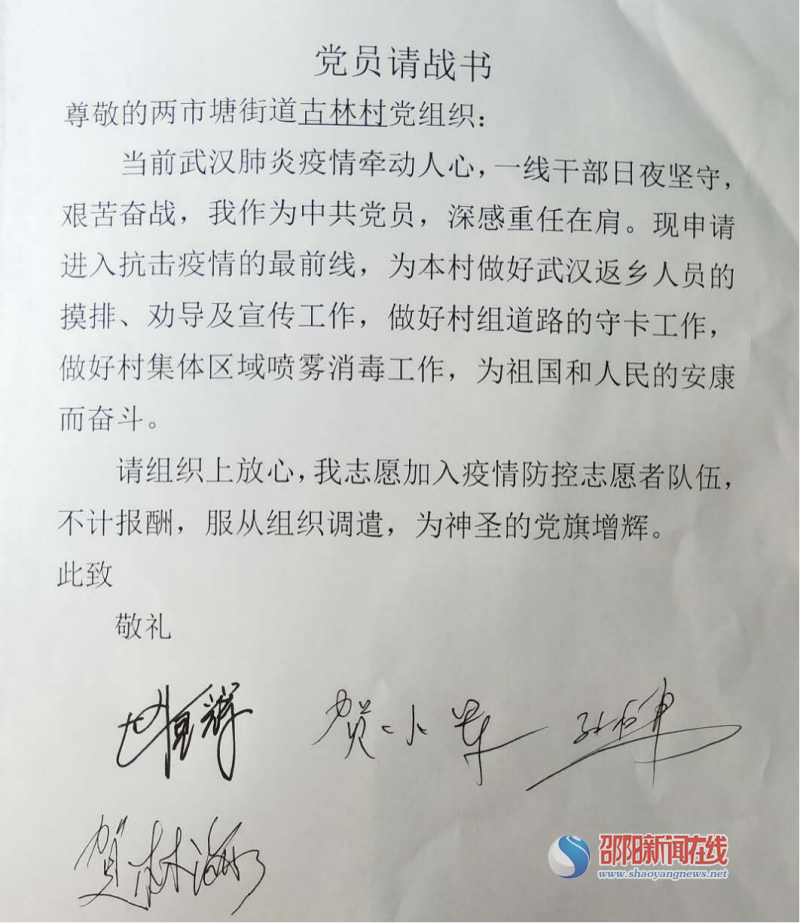 党员请战书
尊敬的两市塘街道古林村党组织：
当前武汉肺炎疫情牵动人心，一线干部日夜坚守，
艰苦奋战，我作为中共党员，深感重任在肩。现申请
进入抗击疫情的最前线，为本村做好武汉返乡人员的
摸排、劝导及宣传工作，做好村组道路的守卡工作，
做好村集体区域喷雾消毒工作，为祖国和人民的安康
而奋斗。
请组织上放心，我志愿加入疫情防控志愿者队伍，
不计报酬，服从组织调遣，为神圣的党旗增辉。
此致
敬礼
贺小
贺林
邵阳新闻在线
www.shaoyangnews.net